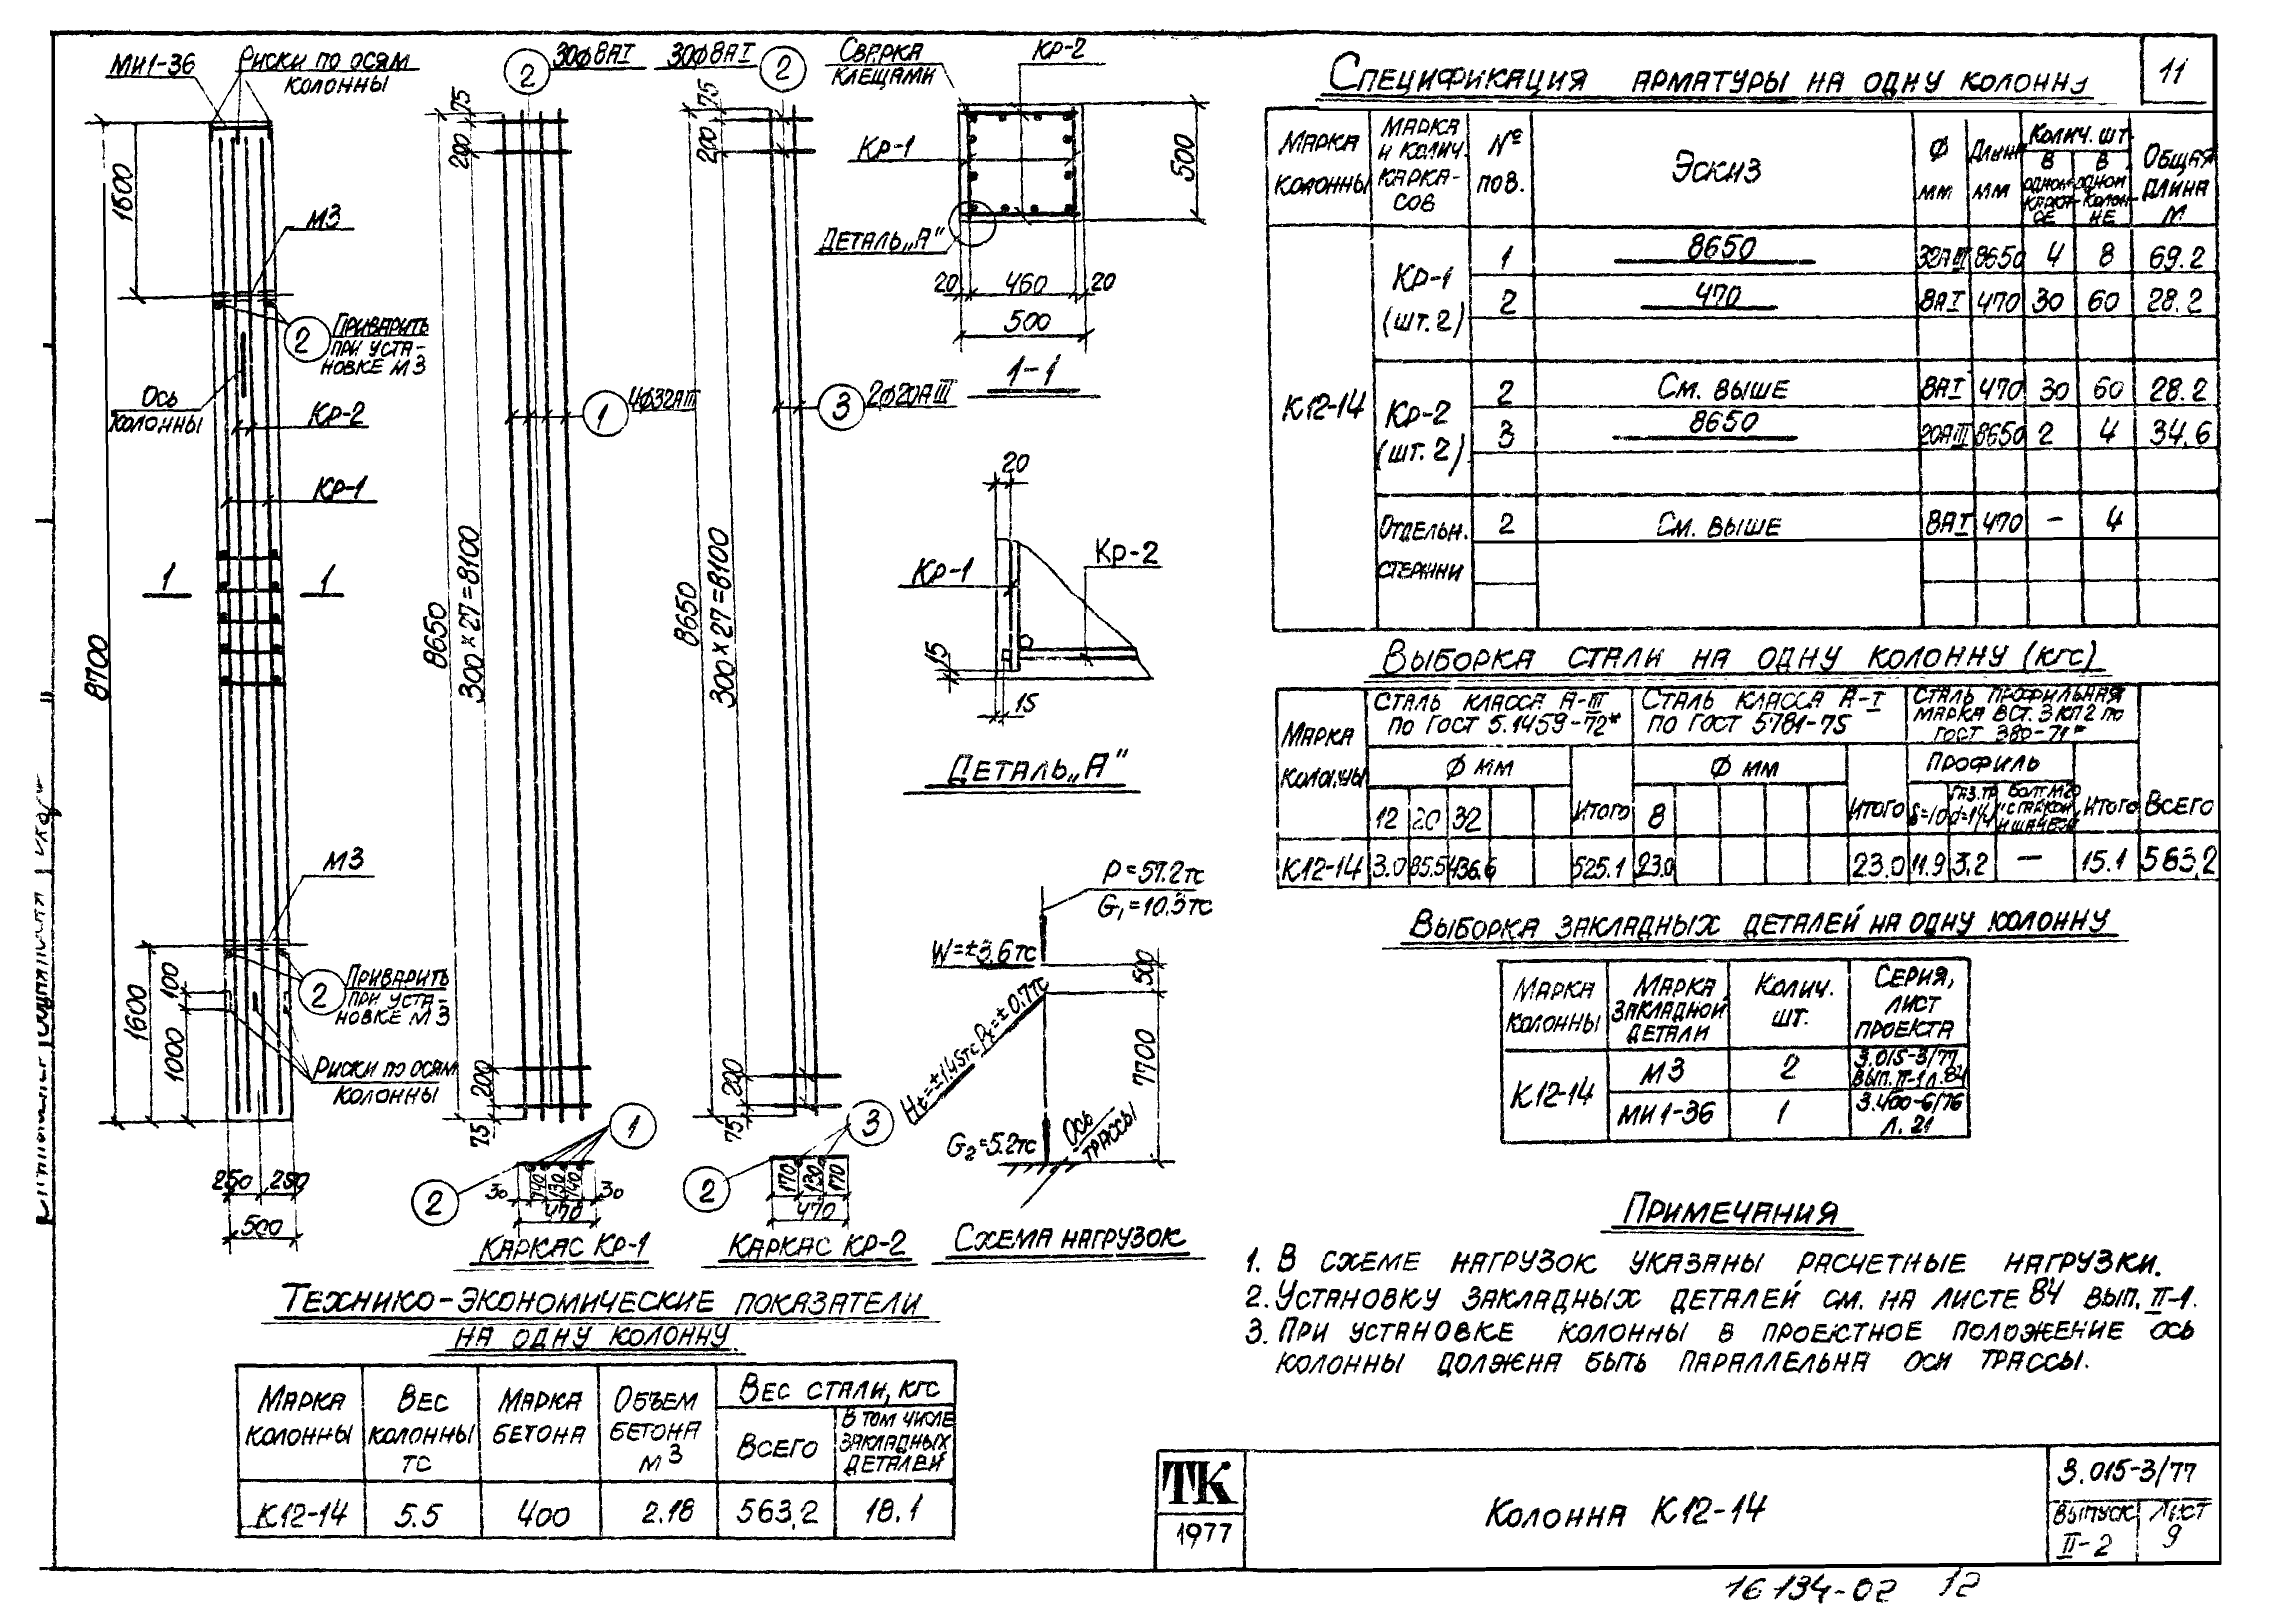 МИ1-36
Риски по осям
колонны
1500
М3
2
Приварить
при уста-
новке М3
Ось
колонны
Кр-2
Кр-1
1
1
8700
М3
1600
100
1000
2
Приварить
при уста-
новке М3
Риски по осям
колонны
250
250
500
2
30ф8АI
75
200
8650
300×27=8100
1
4ф32АIII
200
75
1
2
30
140
130
140
30
470
Каркас Кр-1
30ф8АI
2
75
200
8650
300×27=8100
3
2ф20АIII
200
75
3
2
170
130
170
470
Каркас Кр-2
Сварка
клещами
Кр-2
Кр-1
500
Деталь „А"
20
460
20
500
1-1
20
Кр-1
Кр-2
15
15
Деталь „А"
P=57.2тс
G₁=10.3тс
W=±3.6тс
500
Ht=±1.45тс Px=±0.7тс
7700
G₂=5.2тс
Ось
трассы
Схема нагрузок
Технико-экономические показатели
на одну колонну
Марка колонны
Вес колонны тс
Марка бетона
Объем бетона м3
Вес стали, кгс
Всего
В том числе закладных деталей
К12-14 5.5 400 2.18 563,2 18.1
11
Спецификация арматуры на одну колонну
Марка колонны
Марка и колич. каркасов
№ поз.
Эскиз
ф мм
Длина мм
Колич. шт.
в одном каркасе
в одной колонне
Общая длина м
К12-14
Кр-1 (шт. 2)
1 8650 32АIII 8650 4 8 69.2
2 470 8АI 470 30 60 28.2
Кр-2 (шт. 2)
2 См. выше 8АI 470 30 60 28.2
3 8650 20АIII 8650 2 4 34.6
Отдельн. стержни
2 См. выше 8АI 470 – 4
Выборка стали на одну колонну (кгс)
Марка колонны
Сталь класса А-III
по ГОСТ 5.1459-72*
Сталь класса А-I
по ГОСТ 5781-75
Сталь профильная
марка ВСт.3кп2 по
ГОСТ 380-71*
ф мм
ф мм
Профиль
12 20 32 Итого 8 Итого δ=10 Газ.тр. d=1¼ Болт М20 с гайкой и шайбой Итого Всего
К12-14 3.0 85.5 436.6 525.1 23.0 23.0 11.9 3.2 – 15.1 563,2
Выборка закладных деталей на одну колонну
Марка колонны
Марка закладной детали
Колич. шт.
Серия, лист проекта
К12-14
М3 2 3.015-3/77 вып. II-1 л. 84
МИ1-36 1 3.400-6/76 л. 21
Примечания
1. В схеме нагрузок указаны расчетные нагрузки.
2. Установку закладных деталей см. на листе 84 вып. II-1.
3. При установке колонны в проектное положение ось
колонны должна быть параллельна оси трассы.
ТК
1977
Колонна К12-14
3.015-3/77
Выпуск II-2
Лист 9
16134-02 12